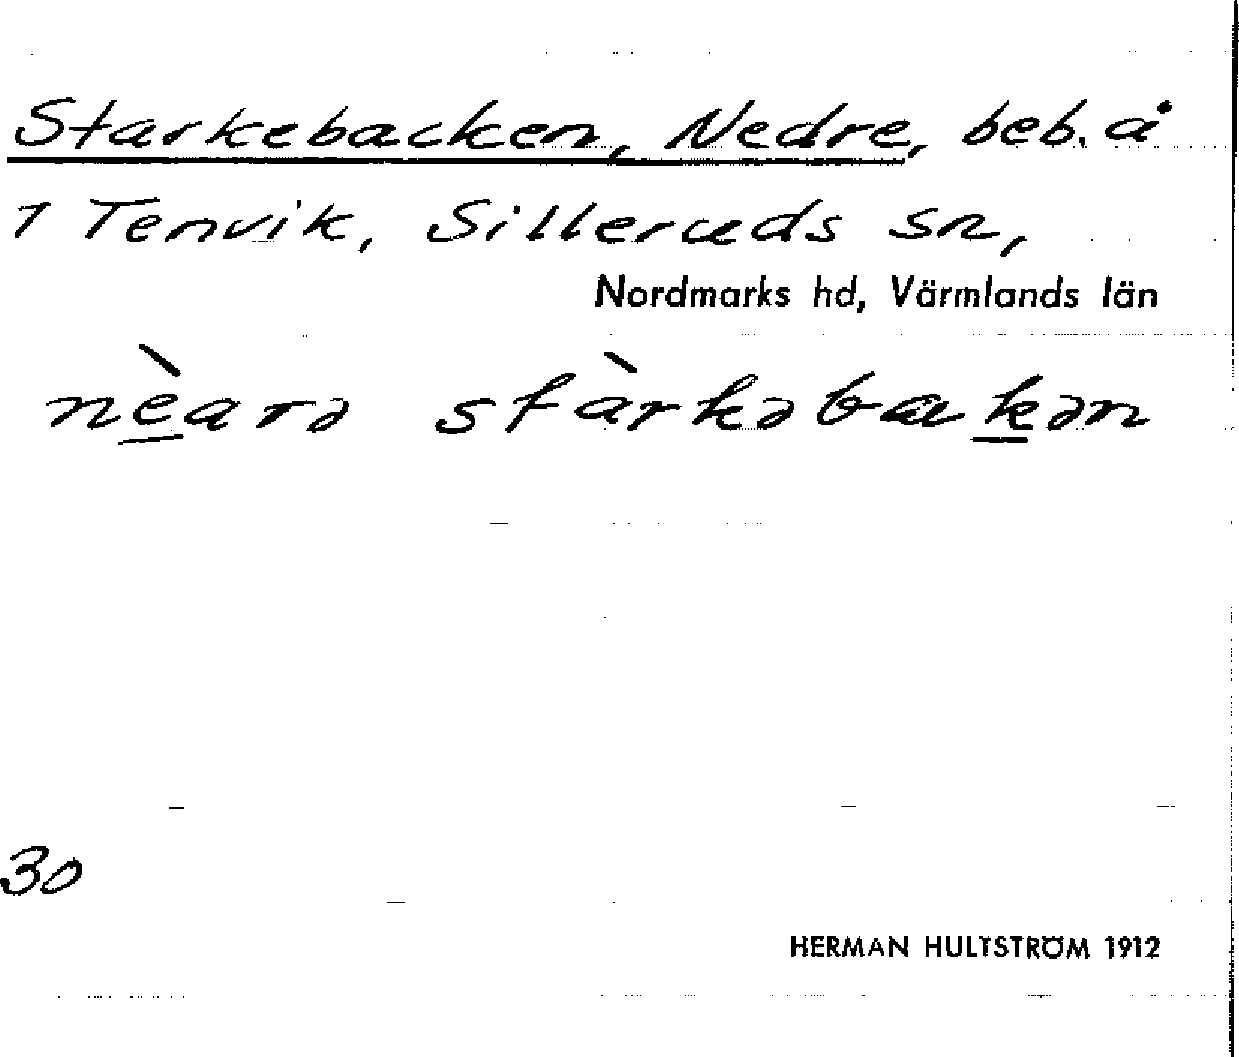 Starkebacken, Nedre, beb. å
1 Tenvik, Silleruds sn,
Nordmarks hd, Värmlands län
nèarə stàrkəbakən
30
HERMAN HULTSTRÖM 1912